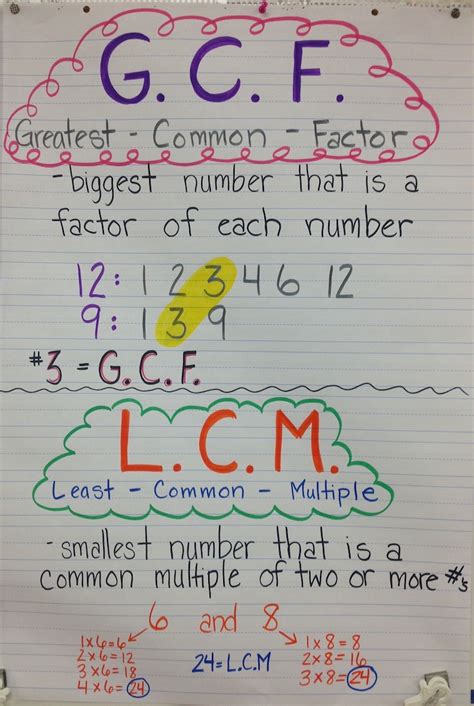 G. C. F.
Greatest - Common - Factor
-biggest number that is a
factor of each number
12: 1 2 3 4 6 12
9: 1 3 9
#3 = G.C.F.
L. C. M.
Least - Common - Multiple
-smallest number that is a
common multiple of two or more #'s
6 and 8
1x6=6
2x6=12
3x6=18
4x6=24
24=L.C.M
1x8=8
2x8=16
3x8=24